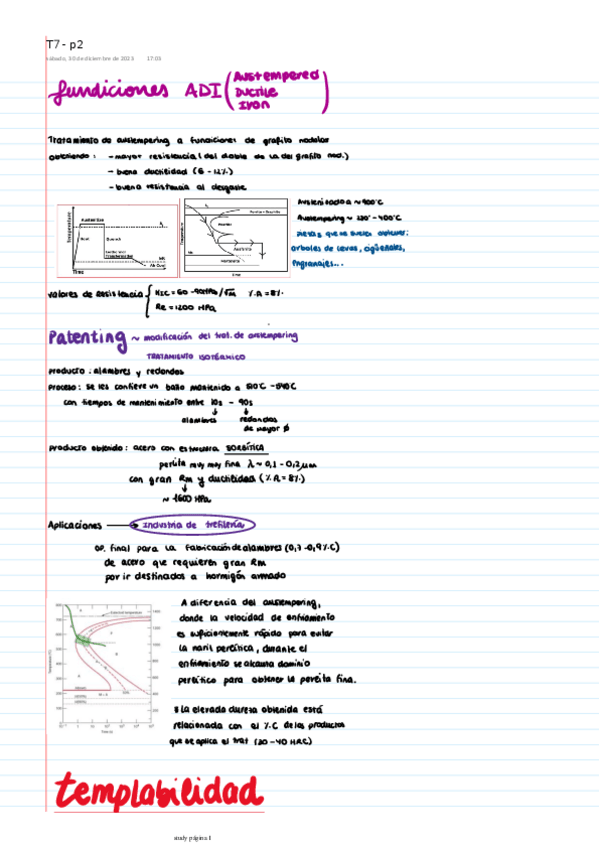 T7 - p2
sábado, 30 de diciembre de 2023 17:03
fundiciones ADI (Austempered Ductile Iron)
Tratamiento de austempering a fundiciones de grafito nodular
obteniendo: - mayor resistencia (del doble de la del grafito nod.)
- buena ductilidad (6 - 12%)
- buena resistencia al desgaste
Austenitizado a ~ 900°C
Austempering ~ 230° - 400°C
Piezas que se suelen obtener:
árboles de levas, cigüeñales,
engranajes...
Temperature
Time
valores de resistencia { KIC = 60 - 90 MPa/√m % A = 8%
Re = 1200 MPa
Patenting ~ modificación del trat. de austempering
TRATAMIENTO ISOTÉRMICO
Producto: alambres y redondos
Proceso: se les confiere un baño mantenido a 510°C - 540°C
con tiempos de mantenimiento entre 10s - 90s
alambres redondos
de mayor Ø
Producto obtenido: acero con estructura SORBÍTICA
perlita muy muy fina λ ~ 0,1 - 0,2 µm
con gran Rm y ductilidad (% A = 8%)
~ 1600 MPa
Aplicaciones → industria de trefilería
op. final para la fabricación de alambres (0,7 - 0,9 % C)
de acero que requieren gran Rm
por ir destinados a hormigón armado
A diferencia del austempering,
donde la velocidad de enfriamiento
es suficientemente rápida para evitar
la nariz perlítica, durante el
enfriamiento se alcanza dominio
perlítico para obtener la perlita fina.
* La elevada dureza obtenida está
relacionada con el % C de los productos
que se aplica el trat (30 - 40 HRC)
templabilidad
study página 8